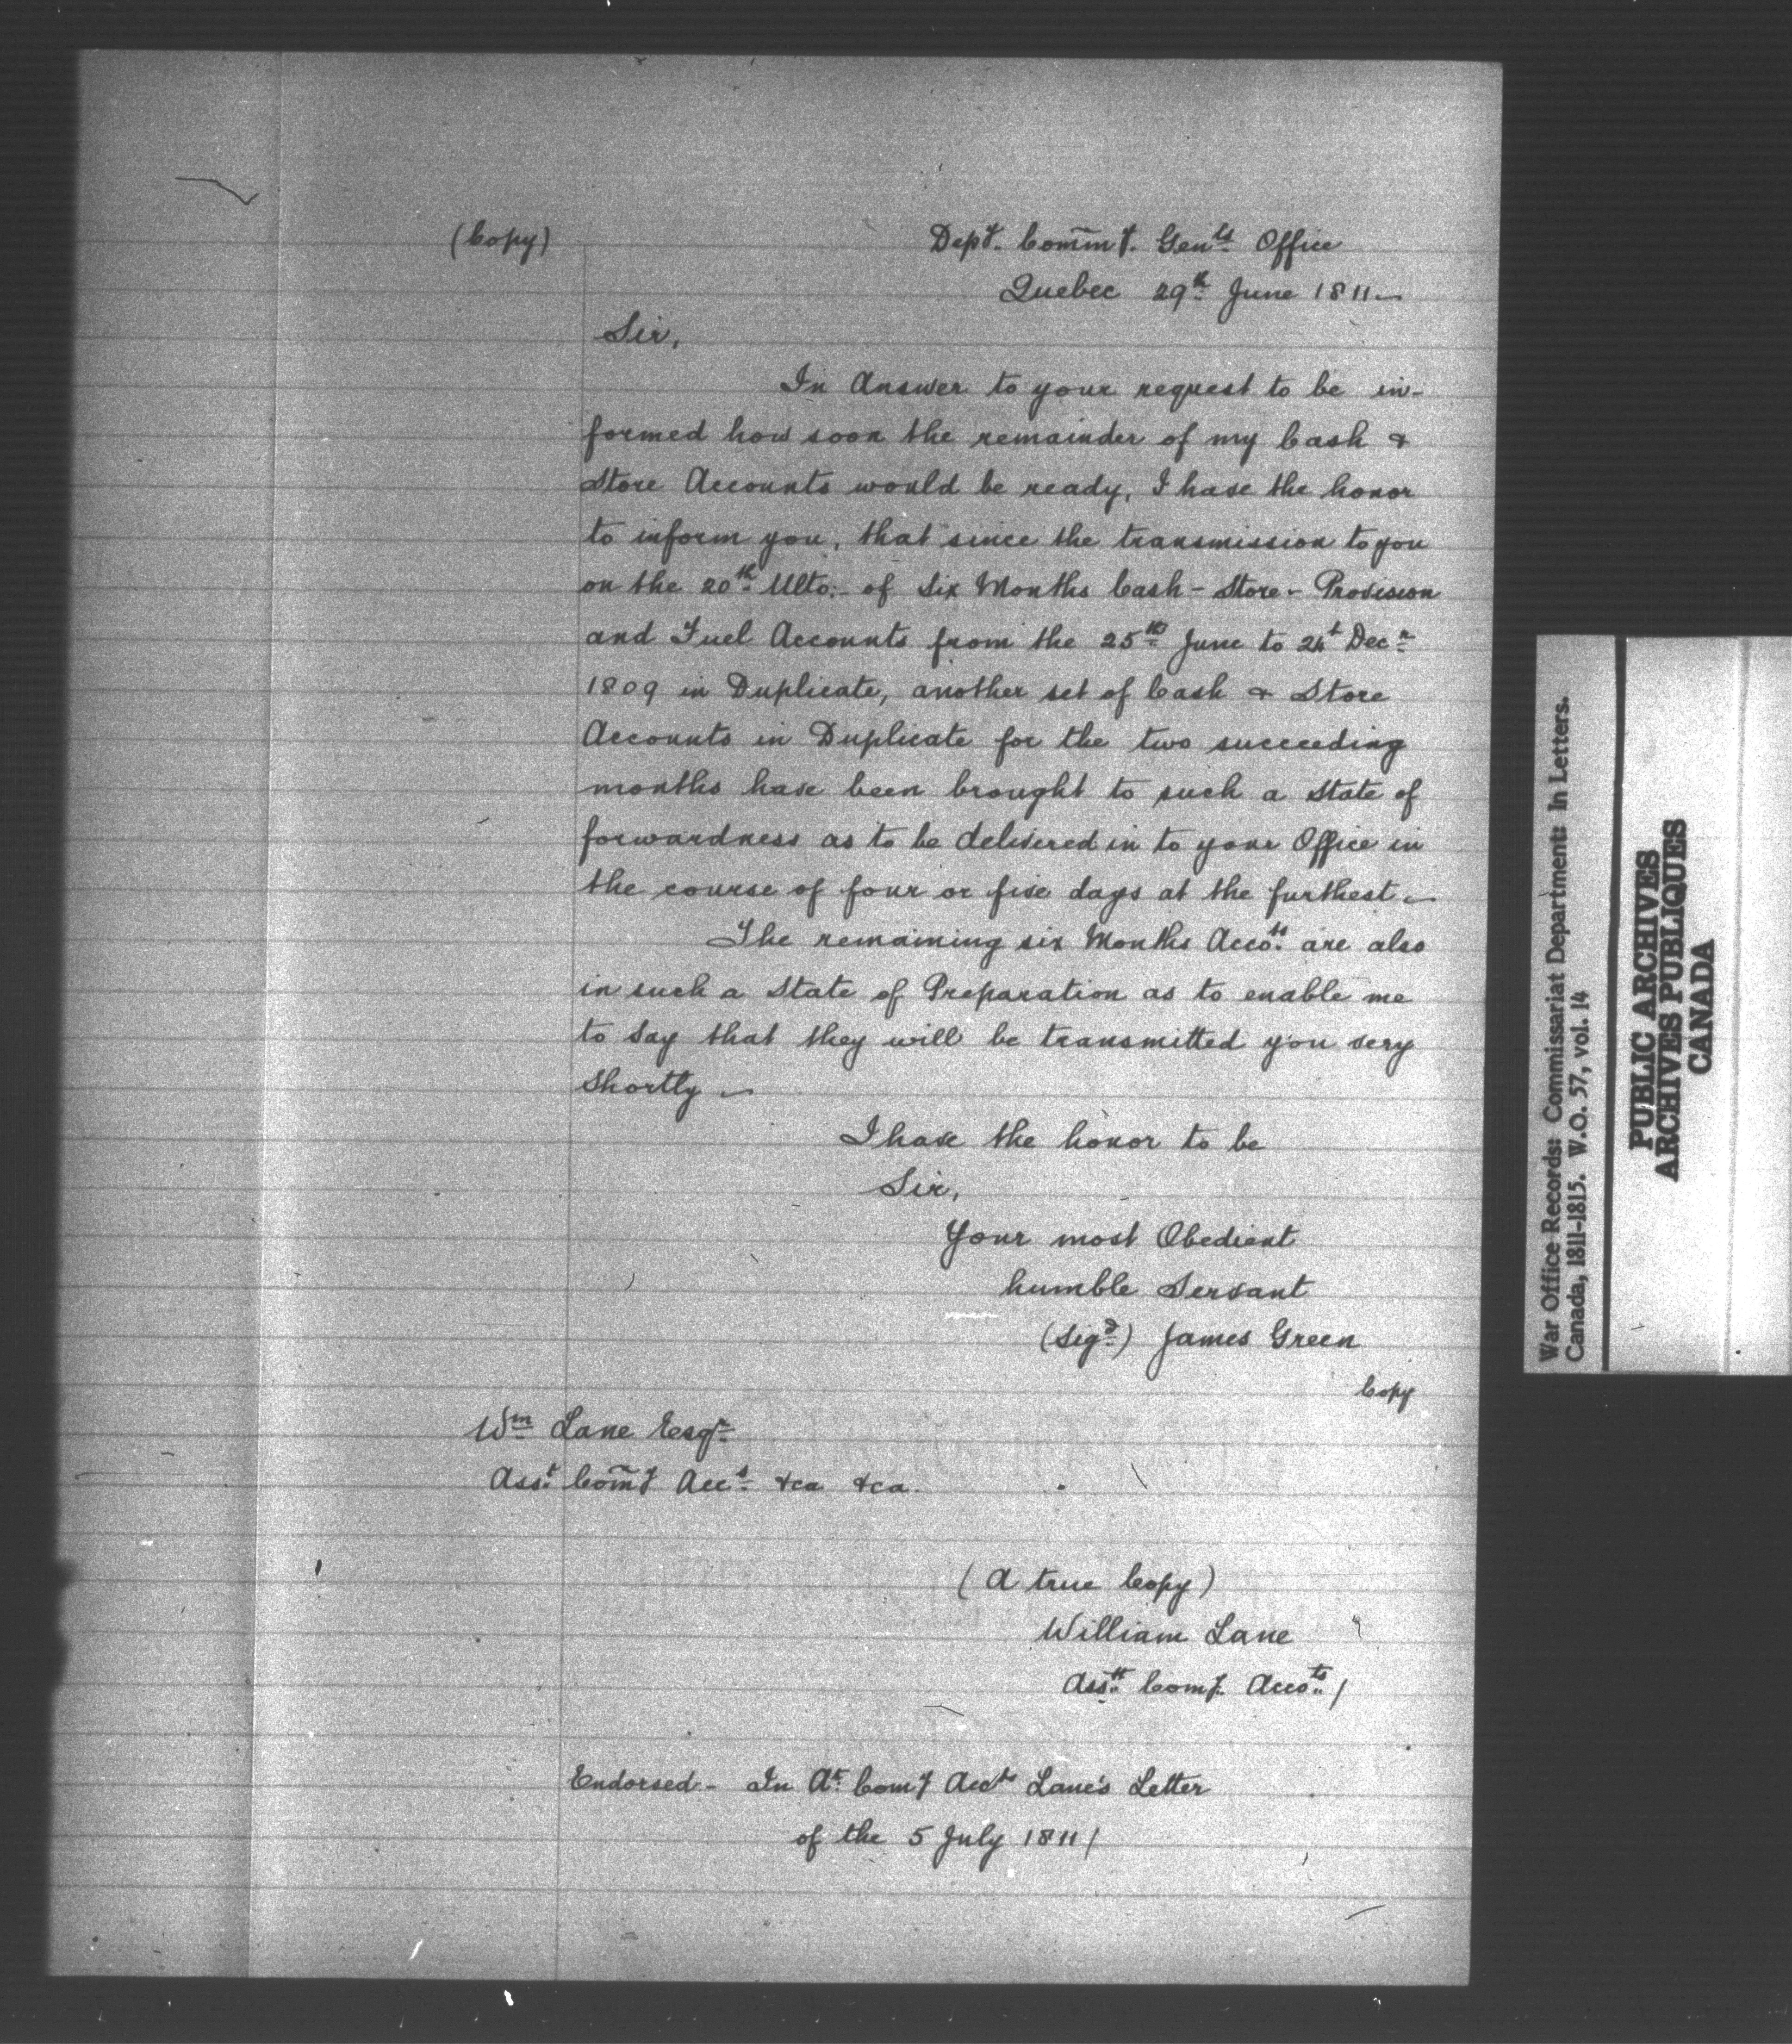 (Copy)
Depy. Commy. Genls Office
Quebec 29th June 1811
Sir,
In Answer to your request to be in-
formed how soon the remainder of my Cash &
Store Accounts would be ready, I have the honor
to inform you, that since the transmission to you
on the 20th Ulto: of Six Months Cash - Store - Provision
and Fuel Accounts from the 25th June to 24t Decr
1809 in Duplicate, another set of Cash & Store
Accounts in Duplicate for the two succeeding
months have been brought to such a State of
forwardness as to be delivered in to your Office in
the course of four or five days at the furthest.
The remaining six Months Accots are also
in such a State of Preparation as to enable me
to say that they will be transmitted you very
shortly
I have the honor to be
Sir,
Your most Obedient
humble Servant
(Sigd) James Green
Copy
Wm Lane Esqr
Asst Comy Acct &ca &ca.
(A true Copy)
William Lane
Asstt Comy. Accots/
Endorsed - In At Comy Accts Lane's Letter
of the 5 July 1811/
War Office Records: Commissariat Department: In Letters.
Canada, 1811-1815. W.O. 57, vol. 14
PUBLIC ARCHIVES
ARCHIVES PUBLIQUES
CANADA